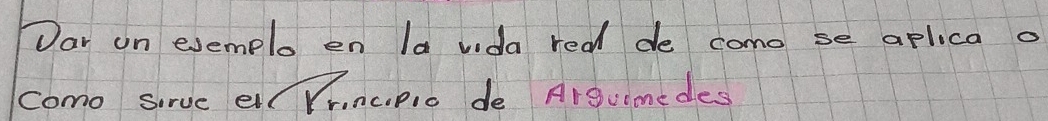 Dar un ejemplo en la vida real de como se aplica o
como sirve el Principio de Arquimedes